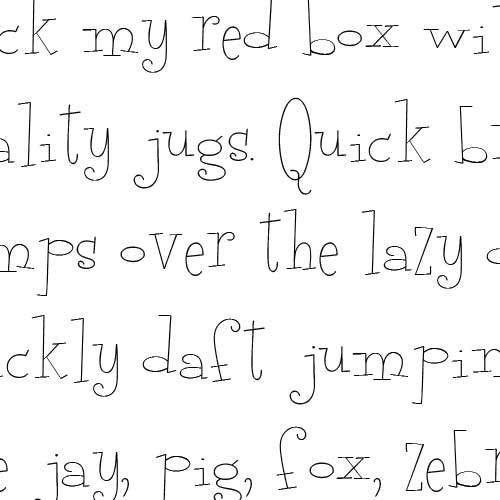 ck my red box wi
ality jugs. Quick b
mps over the lazy
ickly daft jumpin
jay, pig, fox, zebr